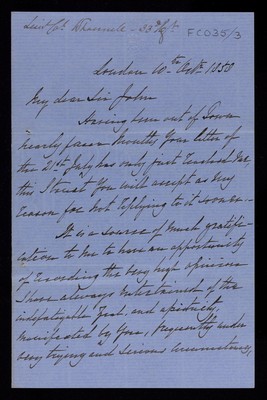 Lieut Col
FC035/3
London 10th Octr 1858
My dear Sir John
Having been out of Town
nearly four Months, Your letter of
the 21st July has only just reached me,
this I trust You will accept as my
reason for not replying to it sooner.
It is a source of much gratifi-
cation to me to have an opportunity
of recording the very high opinion
I have always entertained of the
indefatigable Zeal, and
manifested by You, frequently under
very trying and serious circumstances,